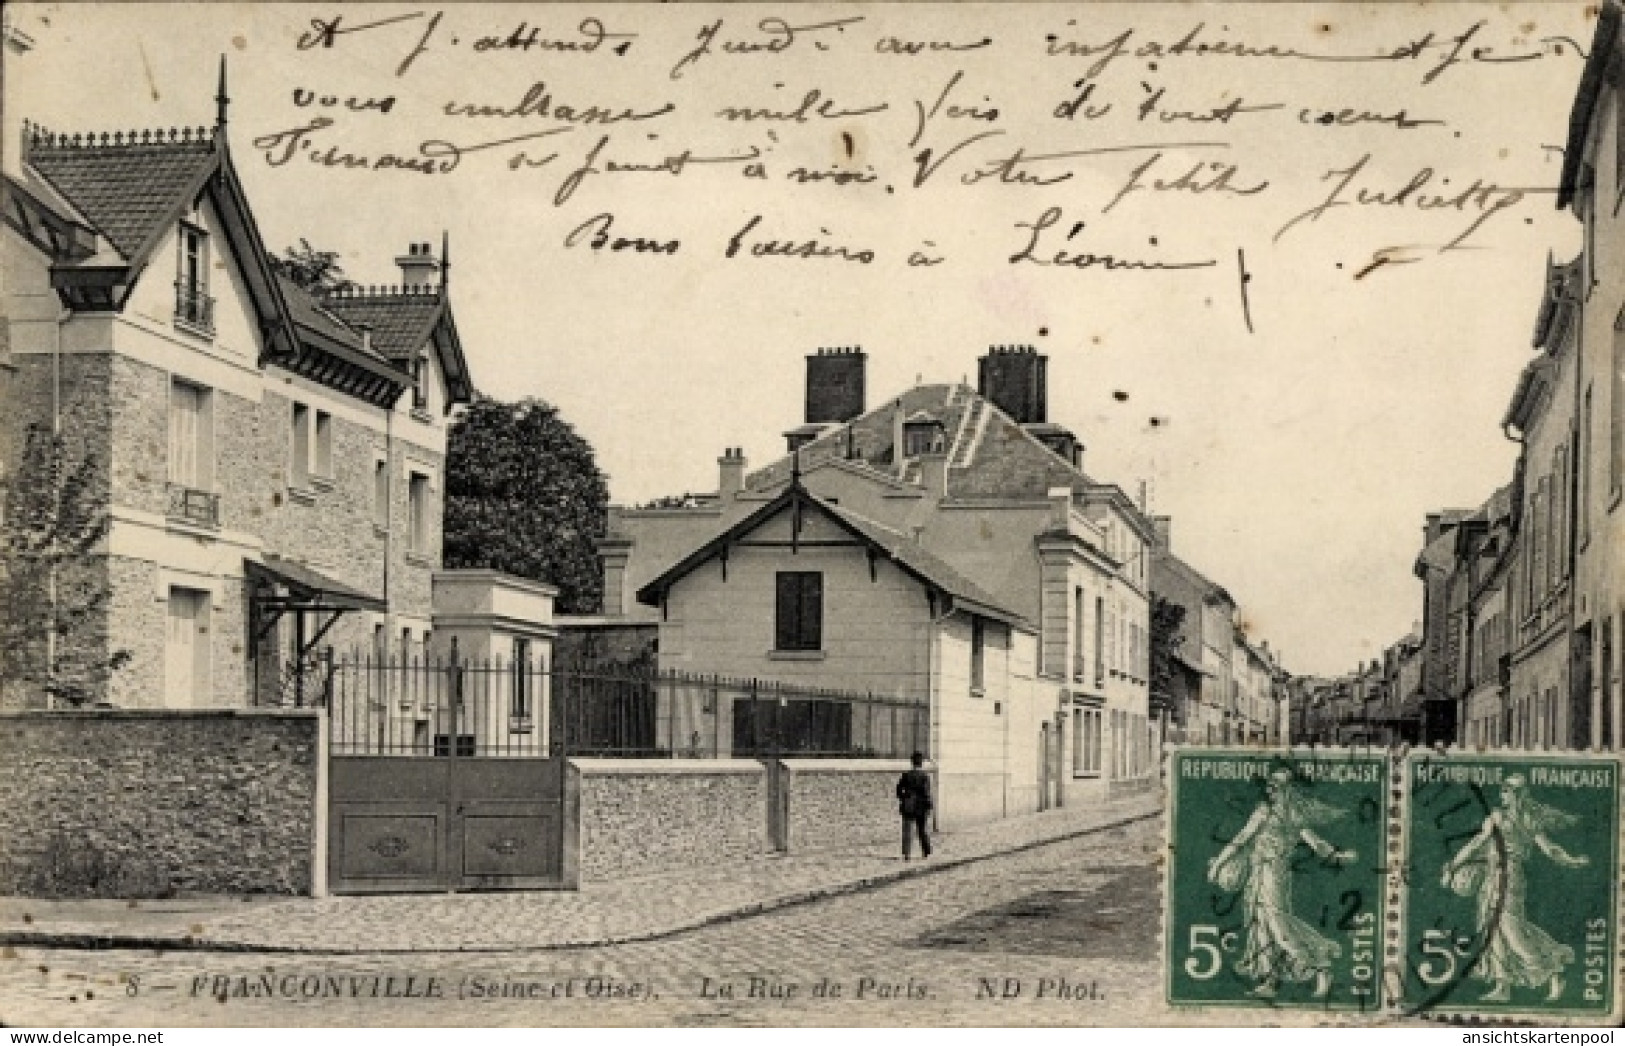 et j'attends Jeudi avec impatience et je
vous embrasse mille fois de tout coeur.
Fernand se joint à moi. Votre petite Juliette.
Bons baisers à Léonie
8 — FRANCONVILLE (Seine et Oise). La Rue de Paris. ND Phot.
REPUBLIQUE FRANÇAISE
5c POSTES
REPUBLIQUE FRANÇAISE
5c POSTES
VILLE
24
12
ansichtskartenpool